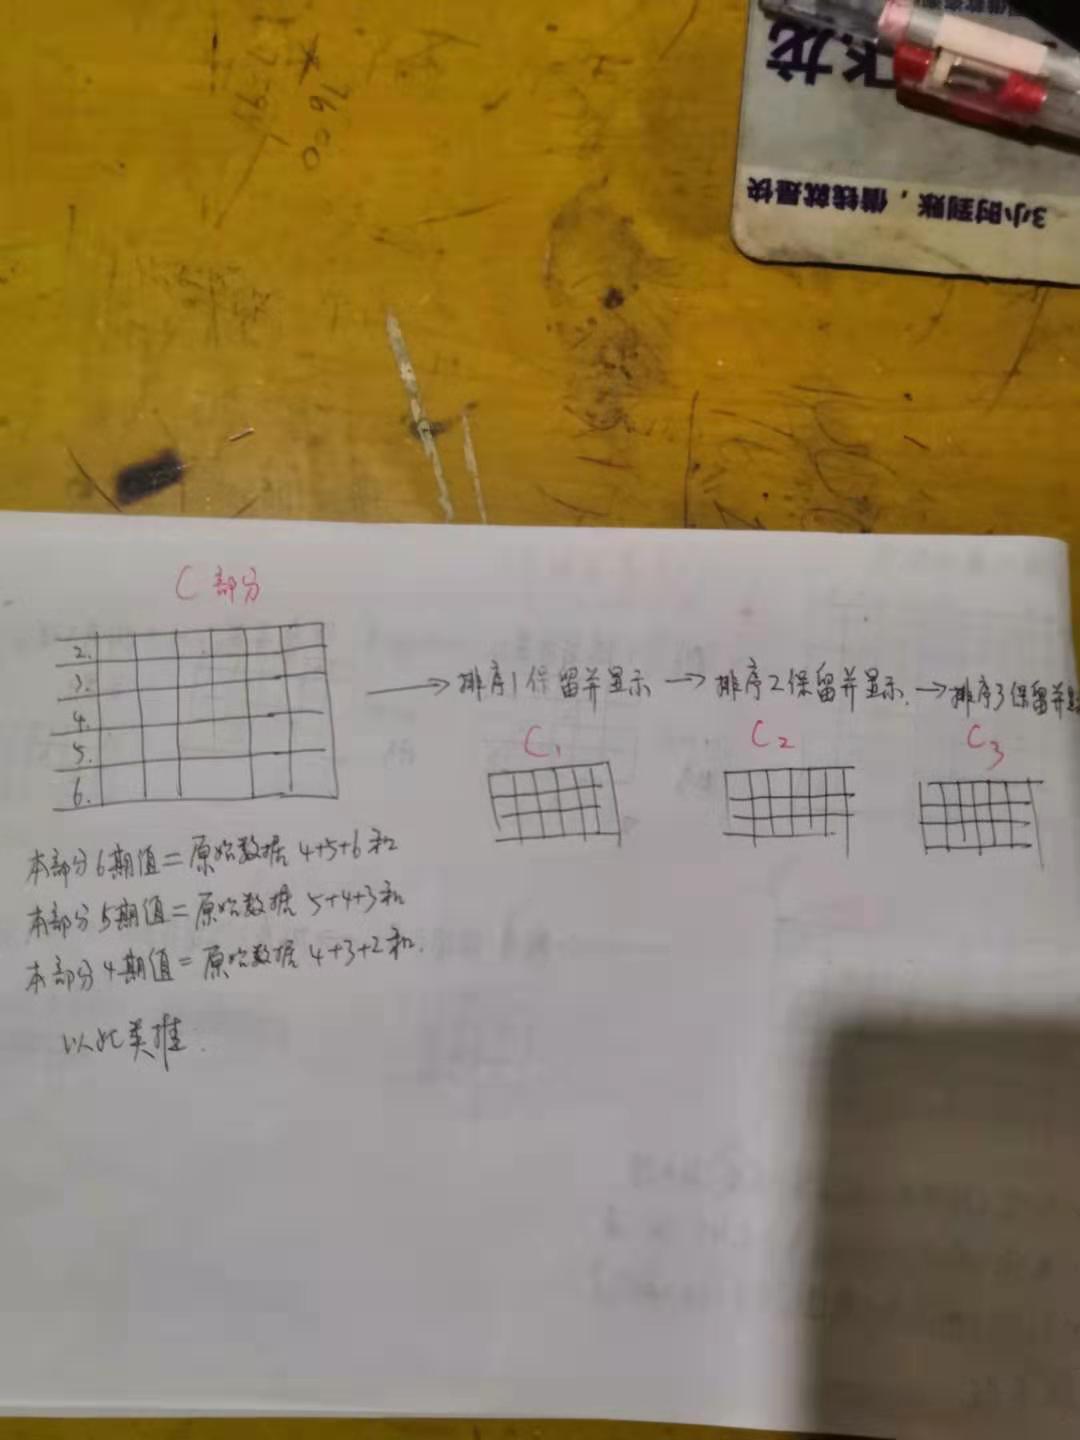 飞龙
3小时到账，借钱就是快
1600
C部分
2.
3.
4.
5.
6.
→排序1保留并显示 →排序2保留并显示. →排序3保留并显
C1 C2 C3
本部分6期值=原始数据 4+5+6和
本部分5期值=原始数据 5+4+3和
本部分4期值=原始数据 4+3+2和.
以此类推.